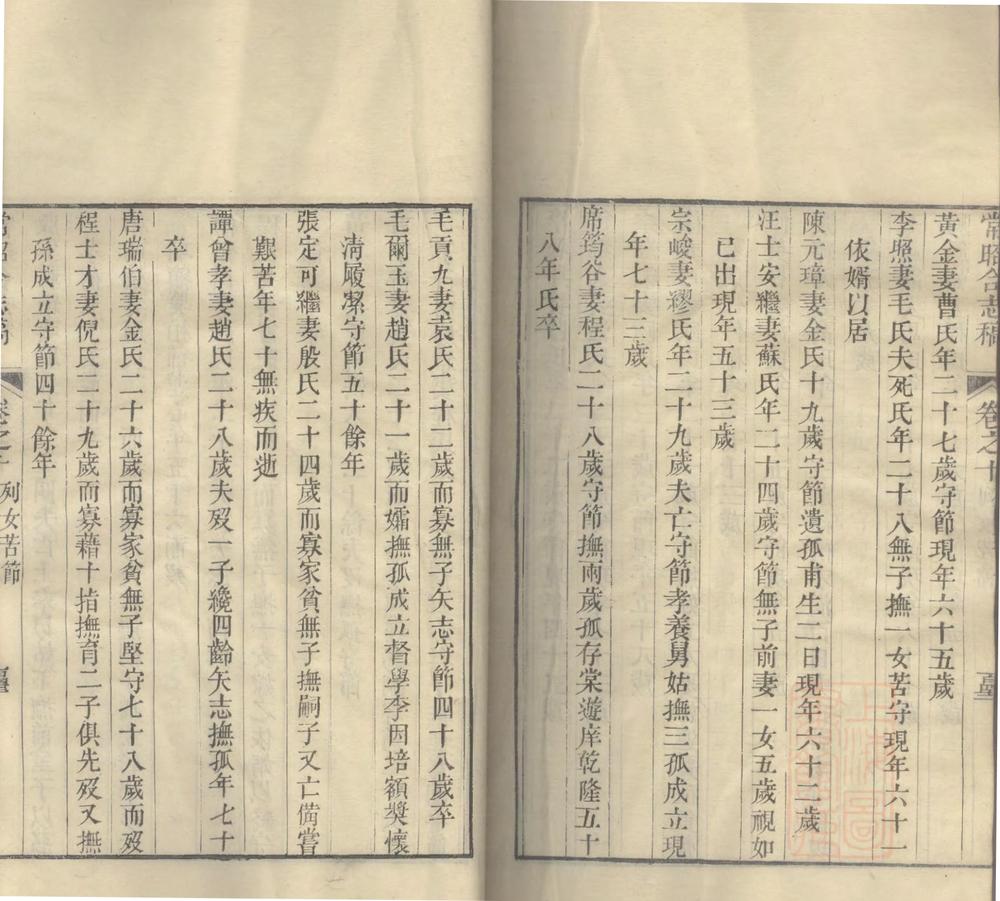 常昭合志稿 卷之十
黃金妻曹氏年二十七歲守節現年六十五歲
李照妻毛氏夫死氏年二十八無子撫一女苦守現年六十一
依婿以居
陳元璋妻金氏十九歲守節遺孤甫生二日現年六十二歲
汪士安繼妻蘇氏年二十四歲守節無子前妻一女五歲視如
已出現年五十三歲
宗峻妻繆氏年二十九歲夫亡守節孝養舅姑撫三孤成立現
年七十三歲
席筠谷妻程氏二十八歲守節撫兩歲孤存棠遊庠乾隆五十
八年氏卒
毛貢九妻袁氏二十二歲而寡無子矢志守節四十八歲卒
毛爾玉妻趙氏二十一歲而孀撫孤成立督學李因培額奬懷
清履潔守節五十餘年
張定可繼妻殷氏二十四歲而寡家貧無子撫嗣子又亡備嘗
艱苦年七十無疾而逝
譚曾孝妻趙氏二十八歲夫歿一子纔四齡矢志撫孤年七十
卒
唐瑞伯妻金氏二十六歲而寡家貧無子堅守七十八歲而歿
程士才妻倪氏二十九歲而寡藉十指撫育二子俱先歿又撫
孫成立守節四十餘年
常昭合志稿 卷之十 列女苦節